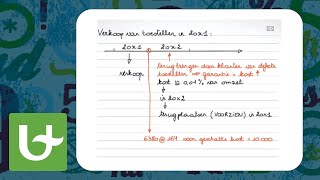 Verkoop van toestellen in 20x1:
20x1 20x2
verkoop
terugbrengen door klanten van defecte
toestellen → garantie = kost ↑
kost is 0,01% van omzet
→ in 20x2
→ terugplaatsen (VOORZIEN) in 20x1
6380 @ 164 voor geschatte kost = 10 000